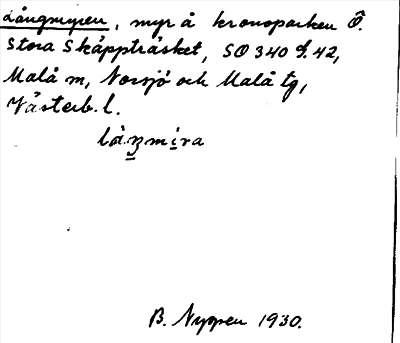 Långmyren, myr å kronoparken Ö.
Stora Skäppträsket, SO 340 f. 42,
Malå m, Norsjö och Malå tg,
Västerb. l.
làŋmíra
B. Nyppen 1930.